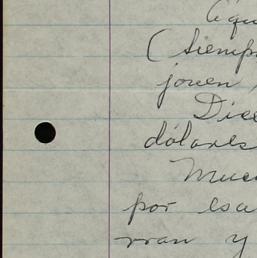 Aqu
(siemp
joven
Dice
dólares
Much
por esa
rran y